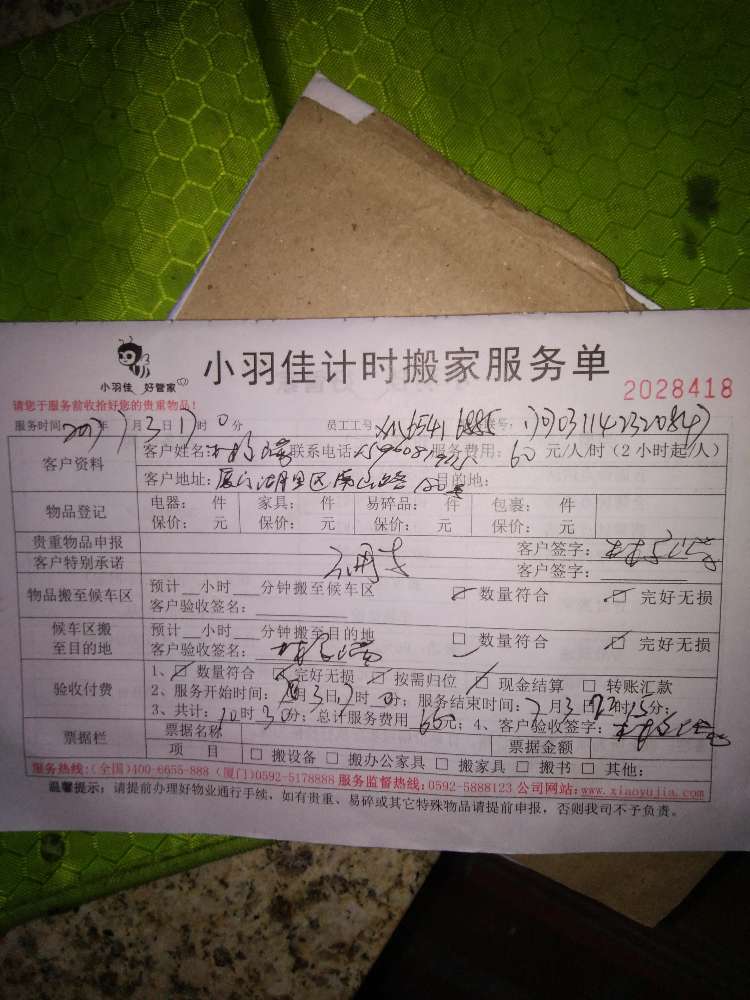 小羽佳 好管家
小羽佳计时搬家服务单
2028418
请您于服务前收拾好您的贵重物品!
服务时间: 年 7月3日17时0分 员工工号
客户资料 客户姓名: 联系电话 服务费用: 60 元/人/时 (2小时起/人)
客户地址: 厦门湖里区南山路 目的地:
物品登记 电器: 件 家具: 件 易碎品: 件 包裹: 件
保价: 元 保价: 元 保价: 元 保价: 元
贵重物品申报 客户签字:
客户特别承诺 客户签字:
物品搬至候车区 预计__小时___分钟搬至候车区 数量符合 完好无损
客户验收签名:
候车区搬至目的地 预计__小时___分钟搬至目的地 数量符合 完好无损
客户验收签名:
验收付费 1、 数量符合 完好无损 按需归位 现金结算 转账汇款
2、服务开始时间: 月3日17时0分; 服务结束时间: 7月3日 时15分;
3、共计: 10时30分; 总计服务费用 元; 4、客户验收签字:
票据栏 票据名称 票据金额
项 目 搬设备 搬办公家具 搬家具 搬书 其他:
服务热线:(全国)400-6655-888 (厦门)0592-5178888 服务监督热线:0592-5888123 公司网站:www.xiaoyujia.com
温馨提示: 请提前办理好物业通行手续, 如有贵重、易碎或其它特殊物品请提前申报, 否则我司不予负责。